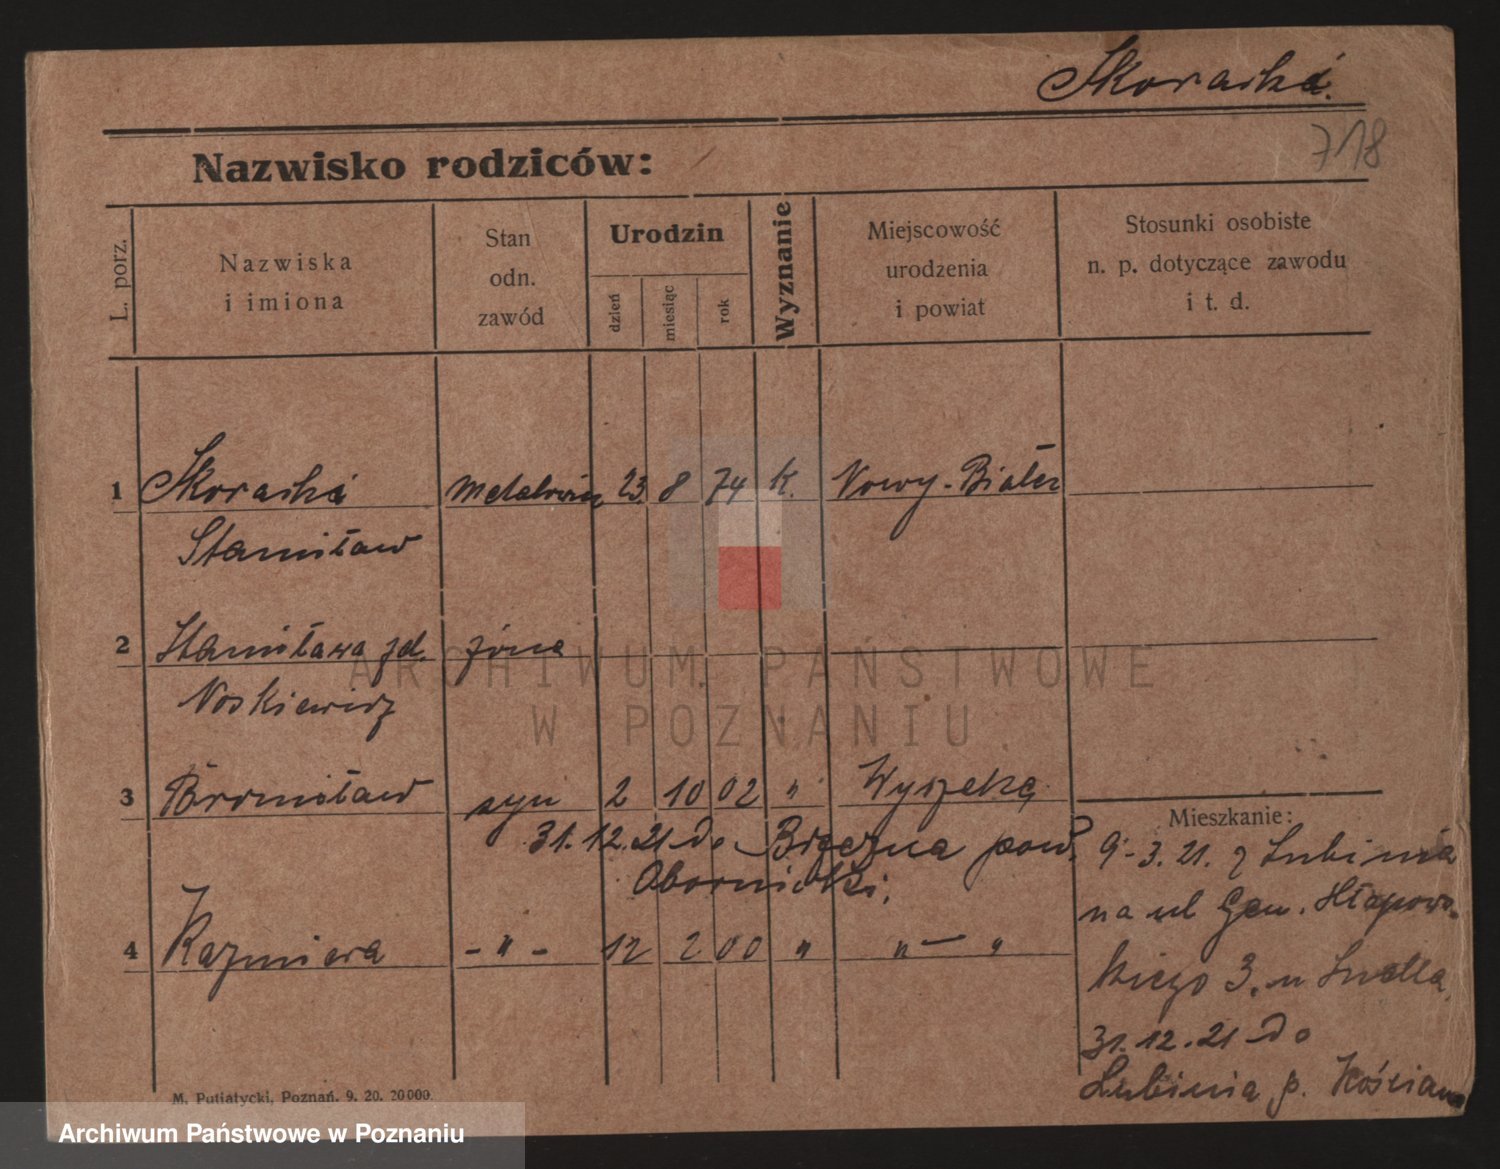 Skoracki.
718
Nazwisko rodziców:
L. porz.
Nazwiska
i imiona
Stan
odn.
zawód
Urodzin
dzień
miesiąc
rok
Wyznanie
Miejscowość
urodzenia
i powiat
Stosunki osobiste
n. p. dotyczące zawodu
i t. d.
1 Skoracki 23. 8 74 K. Nowy-
Stanisław
2 Stanisława zd. żona
Noskiewicz
3 Bronisław syn 2 10 02 "
31.12.21 do pow.
Obornicki.
4 Kazmiera - " - 12 2 00 " " — "
Mieszkanie:
9-3.21. z Lubinia
na ul Gen. Hłapows-
kiego 3. u
31.12.21 do
Lubinia p. Kościan
M. Putiatycki, Poznań. 9. 20. 20000.
ARCHIWUM PAŃSTWOWE
W POZNANIU
Archiwum Państwowe w Poznaniu